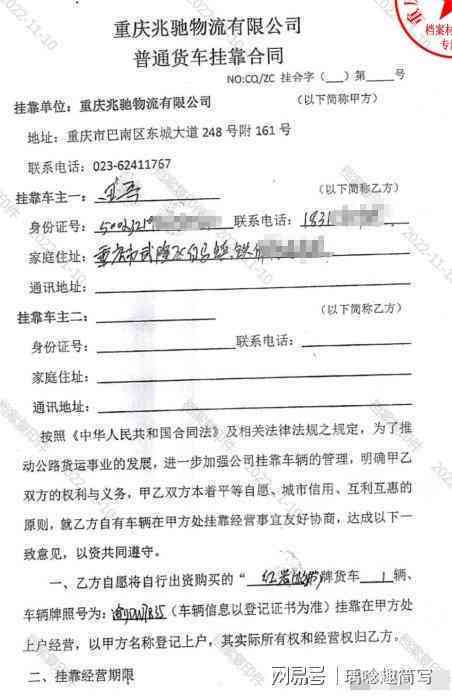 重庆兆驰物流有限公司
普通货车挂靠合同
NO:CQ/ZC 挂合字（ ）第 号
挂靠单位：重庆兆驰物流有限公司 （以下简称甲方）
地址：重庆市巴南区东城大道 248 号附 161 号
联系电话：023-62411767
挂靠车主一： （以下简称乙方）
身份证号： 联系电话：1831
家庭住址：重庆市武隆区白马镇铁
通讯地址：
挂靠车主二： （以下简称乙方）
身份证号： 联系电话：
家庭住址：
通讯地址：
按照《中华人民共和国合同法》及相关法律法规之规定，为了推
动公路货运事业的发展，进一步加强公司挂靠车辆的管理，明确甲乙
双方的权利与义务，甲乙双方本着平等自愿、城市信用、互利互惠的
原则，就乙方自有车辆在甲方处挂靠经营事宜友好协商，达成以下一
致意见，以资共同遵守。
一、乙方自愿将自行出资购买的“ 红岩 牌货车 1 辆、
车辆牌照号为： （车辆信息以登记证书为准）挂靠在甲方处
上户经营，以甲方名称登记上户，其实际所有权和经营权归乙方。
二、挂靠经营期限
档案材
专用
档案复印件
2022-11-10
网易号 | 瑀晗趣简写